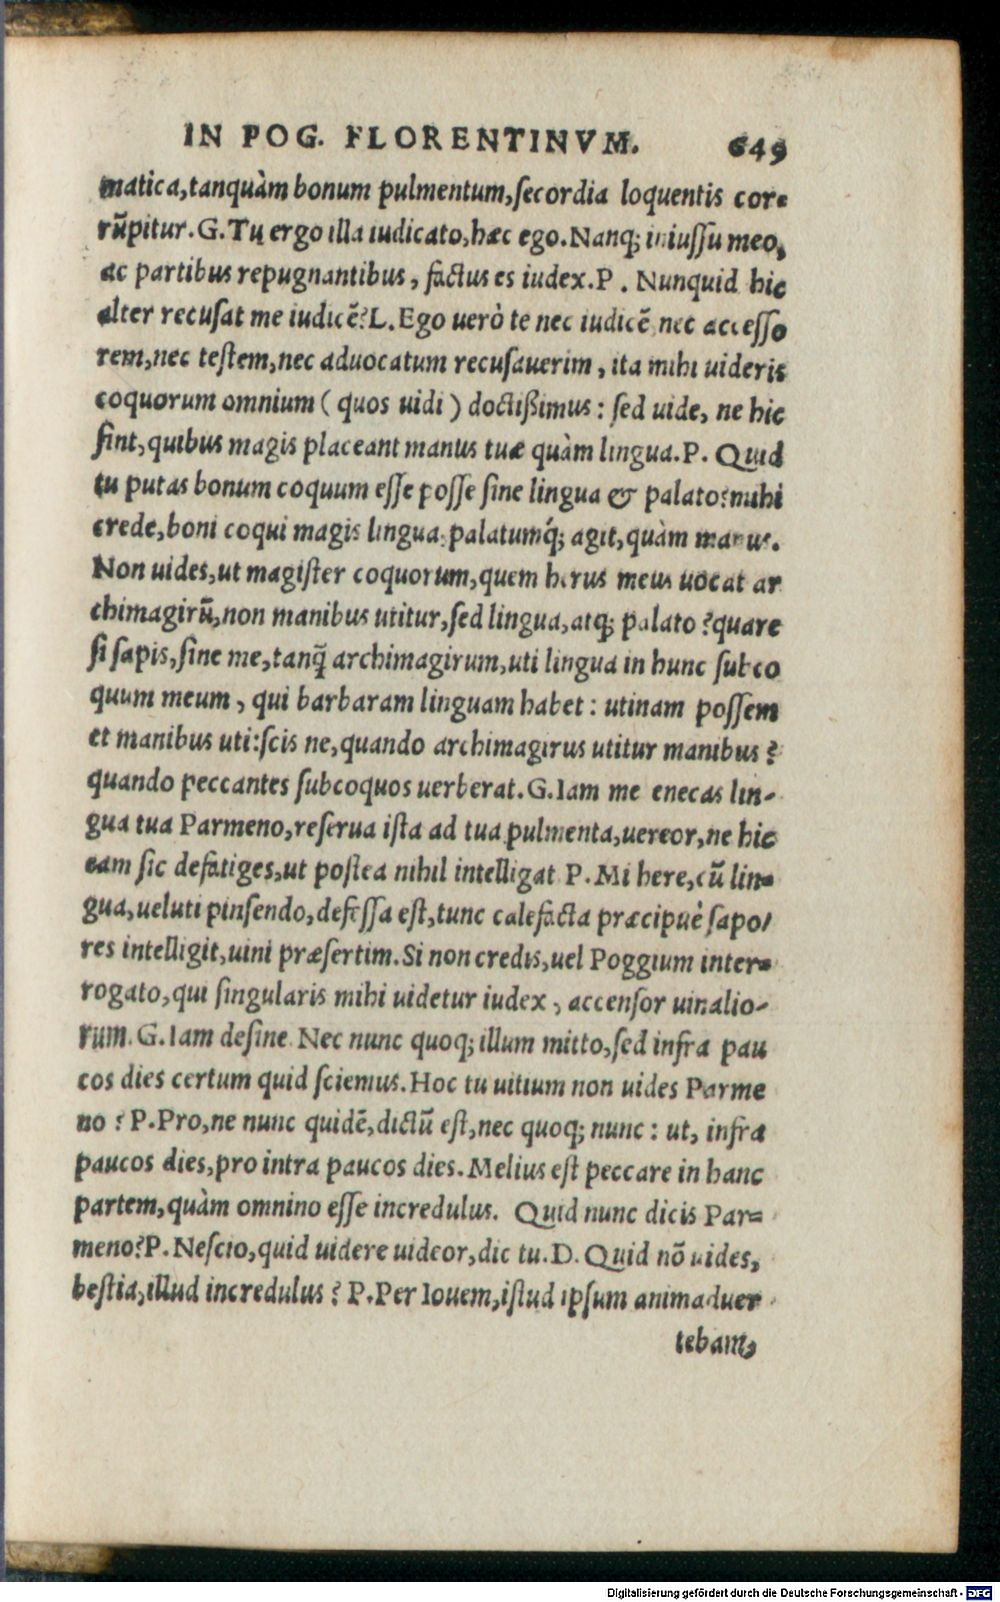 IN POG. FLORENTINVM. 649
matica,tanquàm bonum pulmentum,secordia loquentis cor-
rũpitur.G.Tu ergo illa iudicato,hæc ego.Nanq; iniussu meo,
ac partibus repugnantibus, factus es iudex.P. Nunquid hic
alter recusat me iudicẽ?L.Ego uerò te nec iudicẽ nec accesso
rem,nec testem,nec aduocatum recusauerim, ita mihi uideris
coquorum omnium (quos uidi) doctißimus: sed uide, ne hic
sint,quibus magis placeant manus tuæ quàm lingua.P. Quid
tu putas bonum coquum esse posse sine lingua & palato?mihi
crede,boni coqui magis lingua palatumq́; agit,quàm manus.
Non uides,ut magister coquorum,quem herus meus uocat ar
chimagirũ,non manibus utitur,sed lingua,atq; palato?quare
si sapis,sine me,tanq̃ archimagirum,uti lingua in hunc subco
quum meum, qui barbaram linguam habet: utinam possem
et manibus uti:scis ne,quando archimagirus utitur manibus?
quando peccantes subcoquos uerberat.G.Iam me enecas lin-
gua tua Parmeno,reserua ista ad tua pulmenta,uereor,ne hic
eam sic defatiges,ut postea nihil intelligat P.Mi here,cũ lin-
gua,ueluti pinsendo,defessa est,tunc calefacta præcipuè sapo/
res intelligit,uini præsertim.Si non credis,uel Poggium inter-
rogato,qui singularis mihi uidetur iudex, accensor uinalio-
rum.G.Iam desine Nec nunc quoq; illum mitto,sed infra pau
cos dies certum quid sciemus.Hoc tu uitium non uides Parme
no?P.Pro,ne nunc quidẽ,dictũ est,nec quoq; nunc: ut, infra
paucos dies,pro intra paucos dies.Melius est peccare in hanc
partem,quàm omnino esse incredulus. Quid nunc dicis Par-
meno?P.Nescio,quid uidere uideor,dic tu.D.Quid nõ uides,
bestia,illud incredulus? P.Per Iouem,istud ipsum animaduer
tebam,
Digitalisierung gefördert durch die Deutsche Forschungsgemeinschaft - DFG